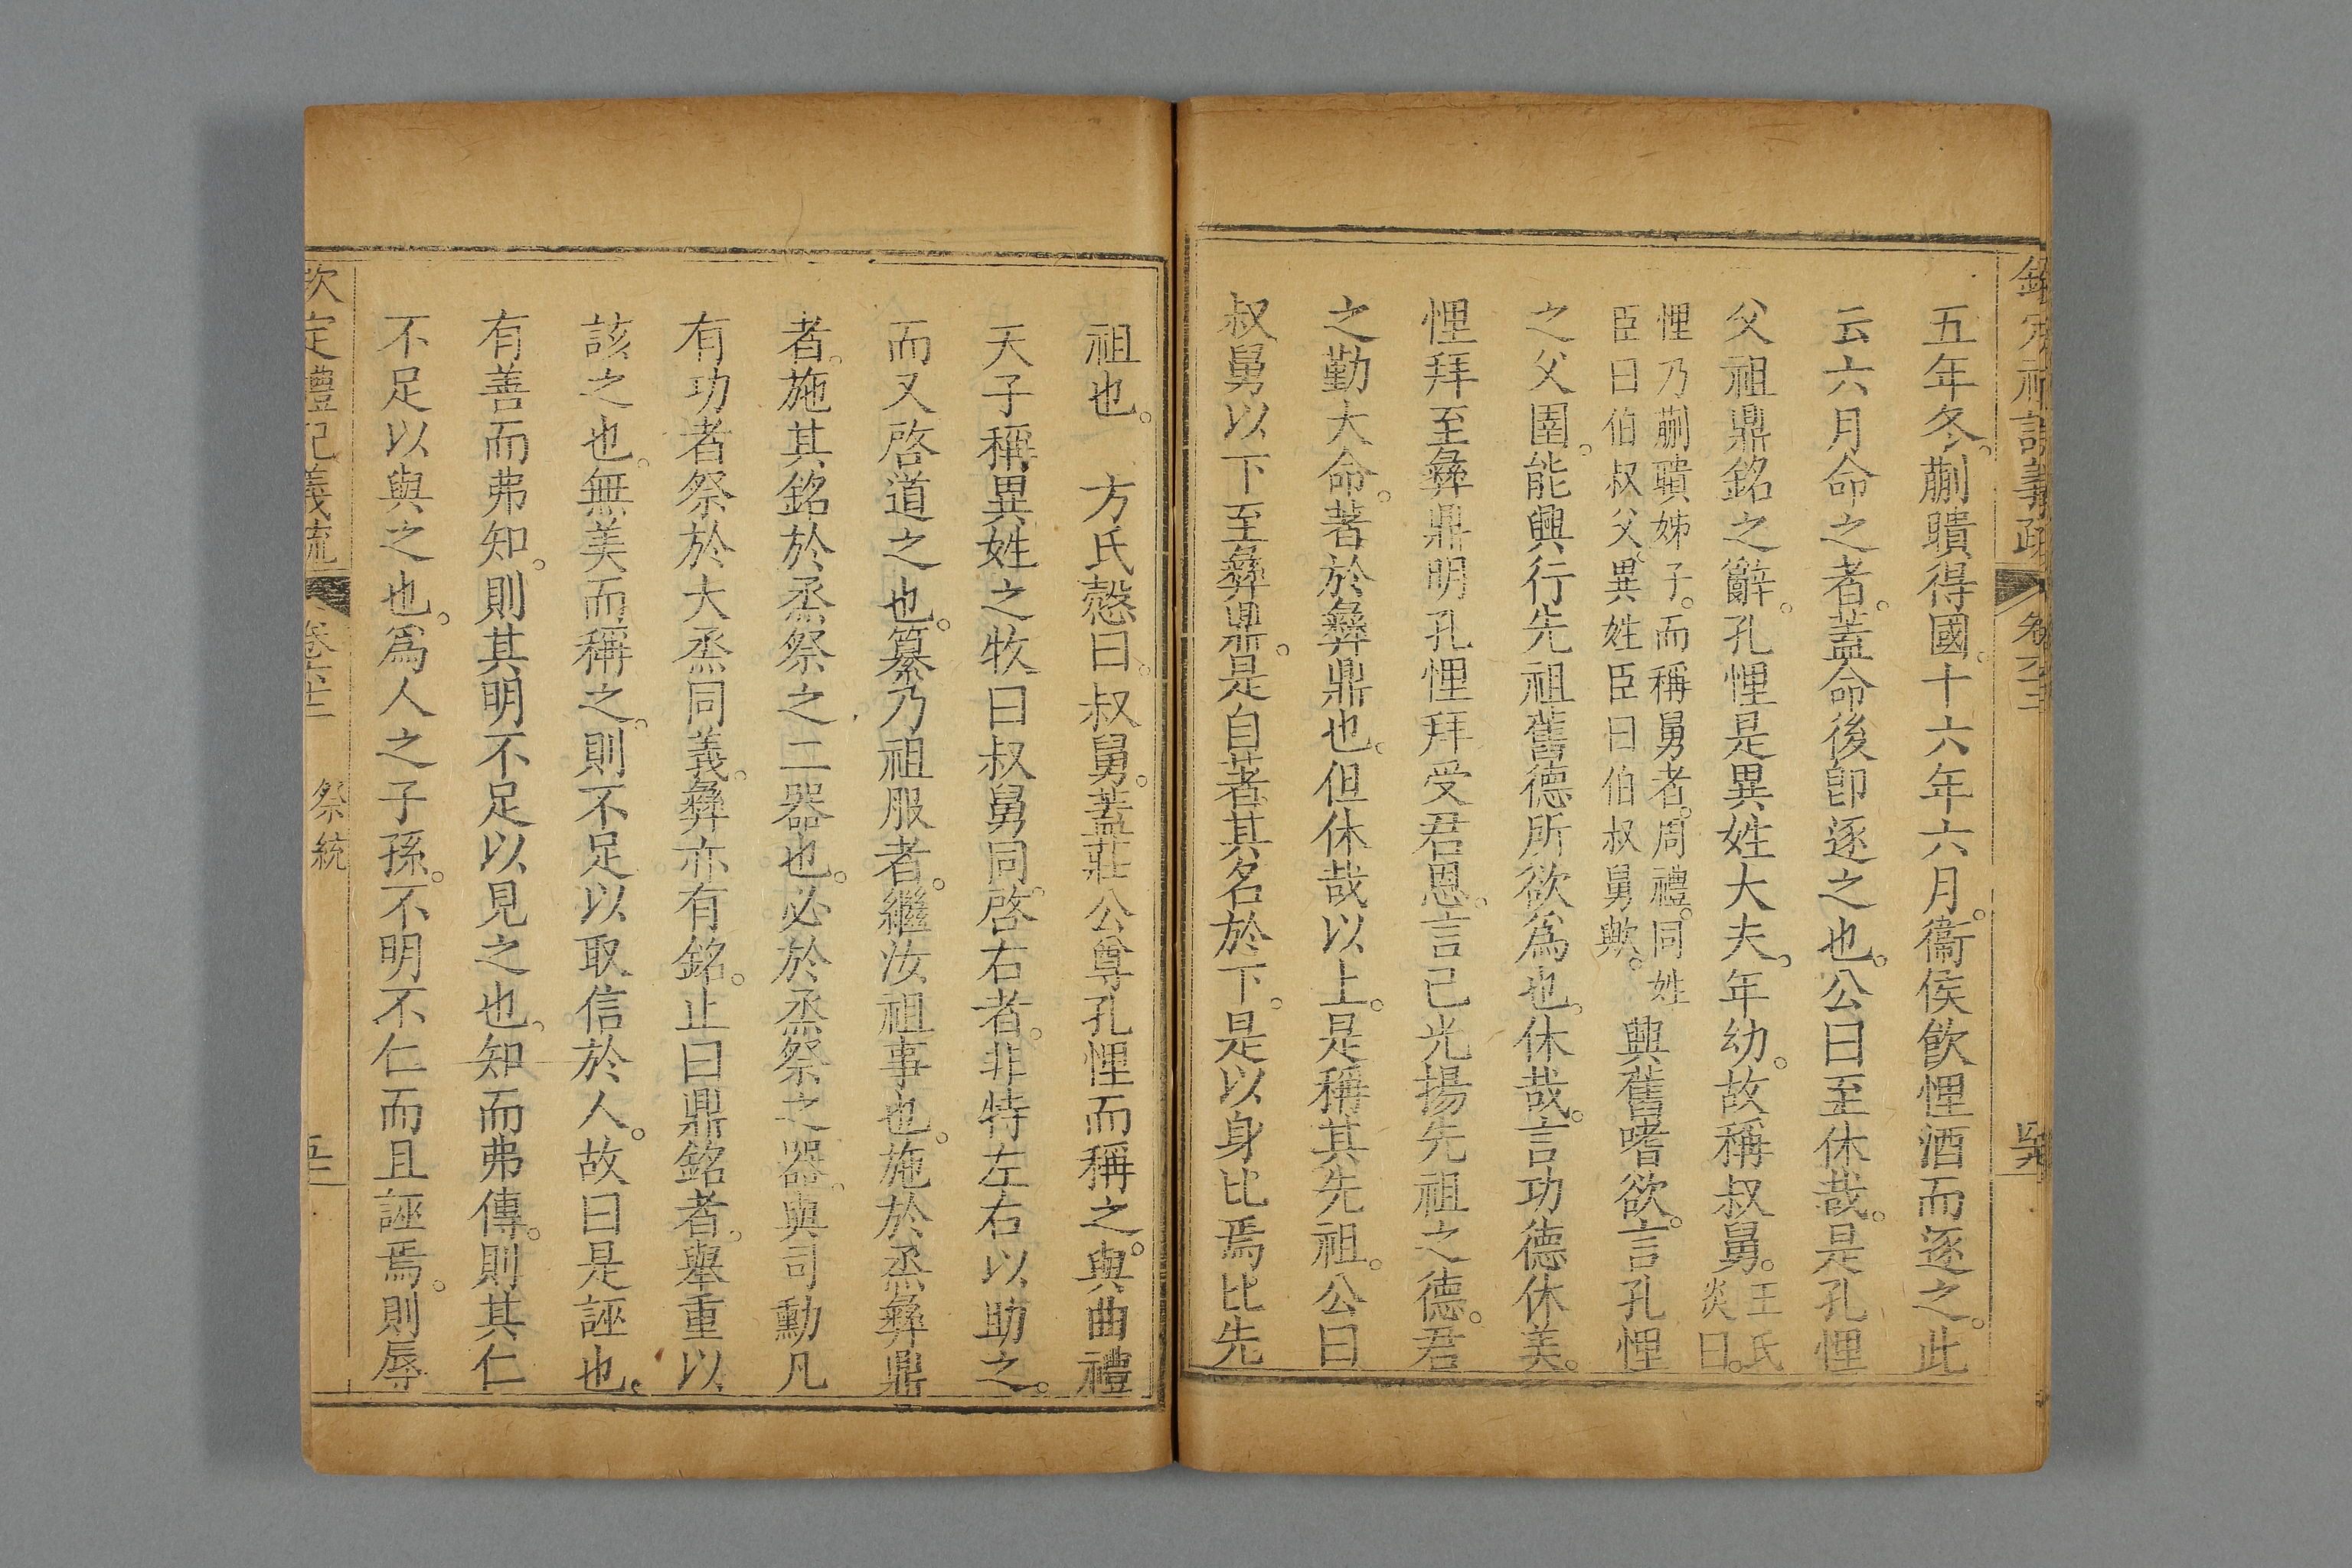 五年冬。蒯聵得國。十六年六月。衞侯飮悝酒而逐之。此
云六月命之者。蓋命後卽逐之也。公曰至休哉。是孔悝
父祖鼎銘之辭。孔悝是異姓大夫。年幼。故稱叔舅。王氏
炎曰。
悝乃蒯聵姊子。而稱舅者。周禮。同姓
臣曰伯叔父。異姓臣曰伯叔舅歟。
興舊嗜欲。言孔悝
之父圉。能興行先祖舊德所欲爲也。休哉。言功德休美。
悝拜至彝鼎明孔悝拜受君恩。言己光揚先祖之德。君
之勤大命。著於彝鼎也。但休哉以上。是稱其先祖。公曰
叔舅以下至彝鼎。是自著其名於下。是以身比焉比先
祖也。　方氏慤曰。叔舅。蓋莊公尊孔悝而稱之。與曲禮
天子稱異姓之牧曰叔舅同。啓右者。非特左右以助之。
而又啓道之也。纂乃祖服者。繼汝祖事也。施於烝彝鼎
者。施其銘於烝祭之二器也。必於烝祭之器。與司勳凡
有功者祭於大烝同義。彝亦有銘。止曰鼎銘者。舉重以
該之也。無美而稱之。則不足以取信於人。故曰是誣也。
有善而弗知。則其明不足以見之也。知而弗傳。則其仁
不足以與之也。爲人之子孫。不明不仁而且誣焉。則辱
欽定禮記義疏
卷六十二
祭統